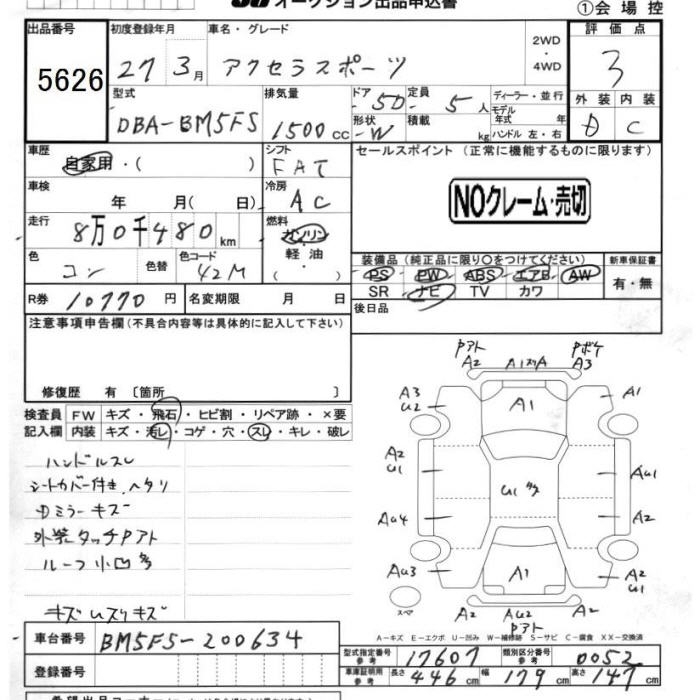 オークション出品申込書
①会場控
出品番号
5626
初度登録年月
27 3月
車名・グレード
アクセラスポーツ
2WD
・
4WD
評価点
3
型式
DBA-BM5FS
排気量
1500cc
ドア
・5D
形状
-W
定員
5人
積載
kg
ディーラー・並行
モデル年式 年
ハンドル 左・右
外装 内装
D C
車歴
自家用・( )
シフト
FAT
車検
年 月( 日)
冷房
AC
走行
8万0千480km
燃料
ガソリン
・
軽油
( )
色
コン
色替
色コード
42M
R券 10770円
名変期限 月 日
セールスポイント (正常に機能するものに限ります)
NOクレーム・売切
装備品(純正品に限り○をつけてください)
PS PW ABS エアB AW
SR ナビ TV カワ
新車保証書
有・無
後日品
注意事項申告欄(不具合内容等は具体的に記入して下さい)
修復歴 有〔箇所 〕
検査員 FW キズ・飛石・ヒビ割・リペア跡・×要
記入欄 内装 キズ・汚レ・コゲ・穴・スレ・キレ・破レ
ハンドルスレ
シートカバー付き、ヘタリ
Dミラーキズ
外装タッチPアト
ルーフ小凹多
キズ
Pアト
A2
A1スリA
Pボケ
A3
A3
U2
A1
A1
A2
U1
U1多
AU1
AU4
A2
AU3
A1
A2
U1
スペア
A2
AU2
Pアト
A2
A-キズ E-エクボ U-凹み W-補修跡 S-サビ C-腐食 XX-交換済
車台番号 BM5FS-200634
登録番号
型式指定番号 参考 17607
類別区分番号 参考 0052
車庫証明用 参考 長さ 446cm 幅 179cm 高さ 147cm